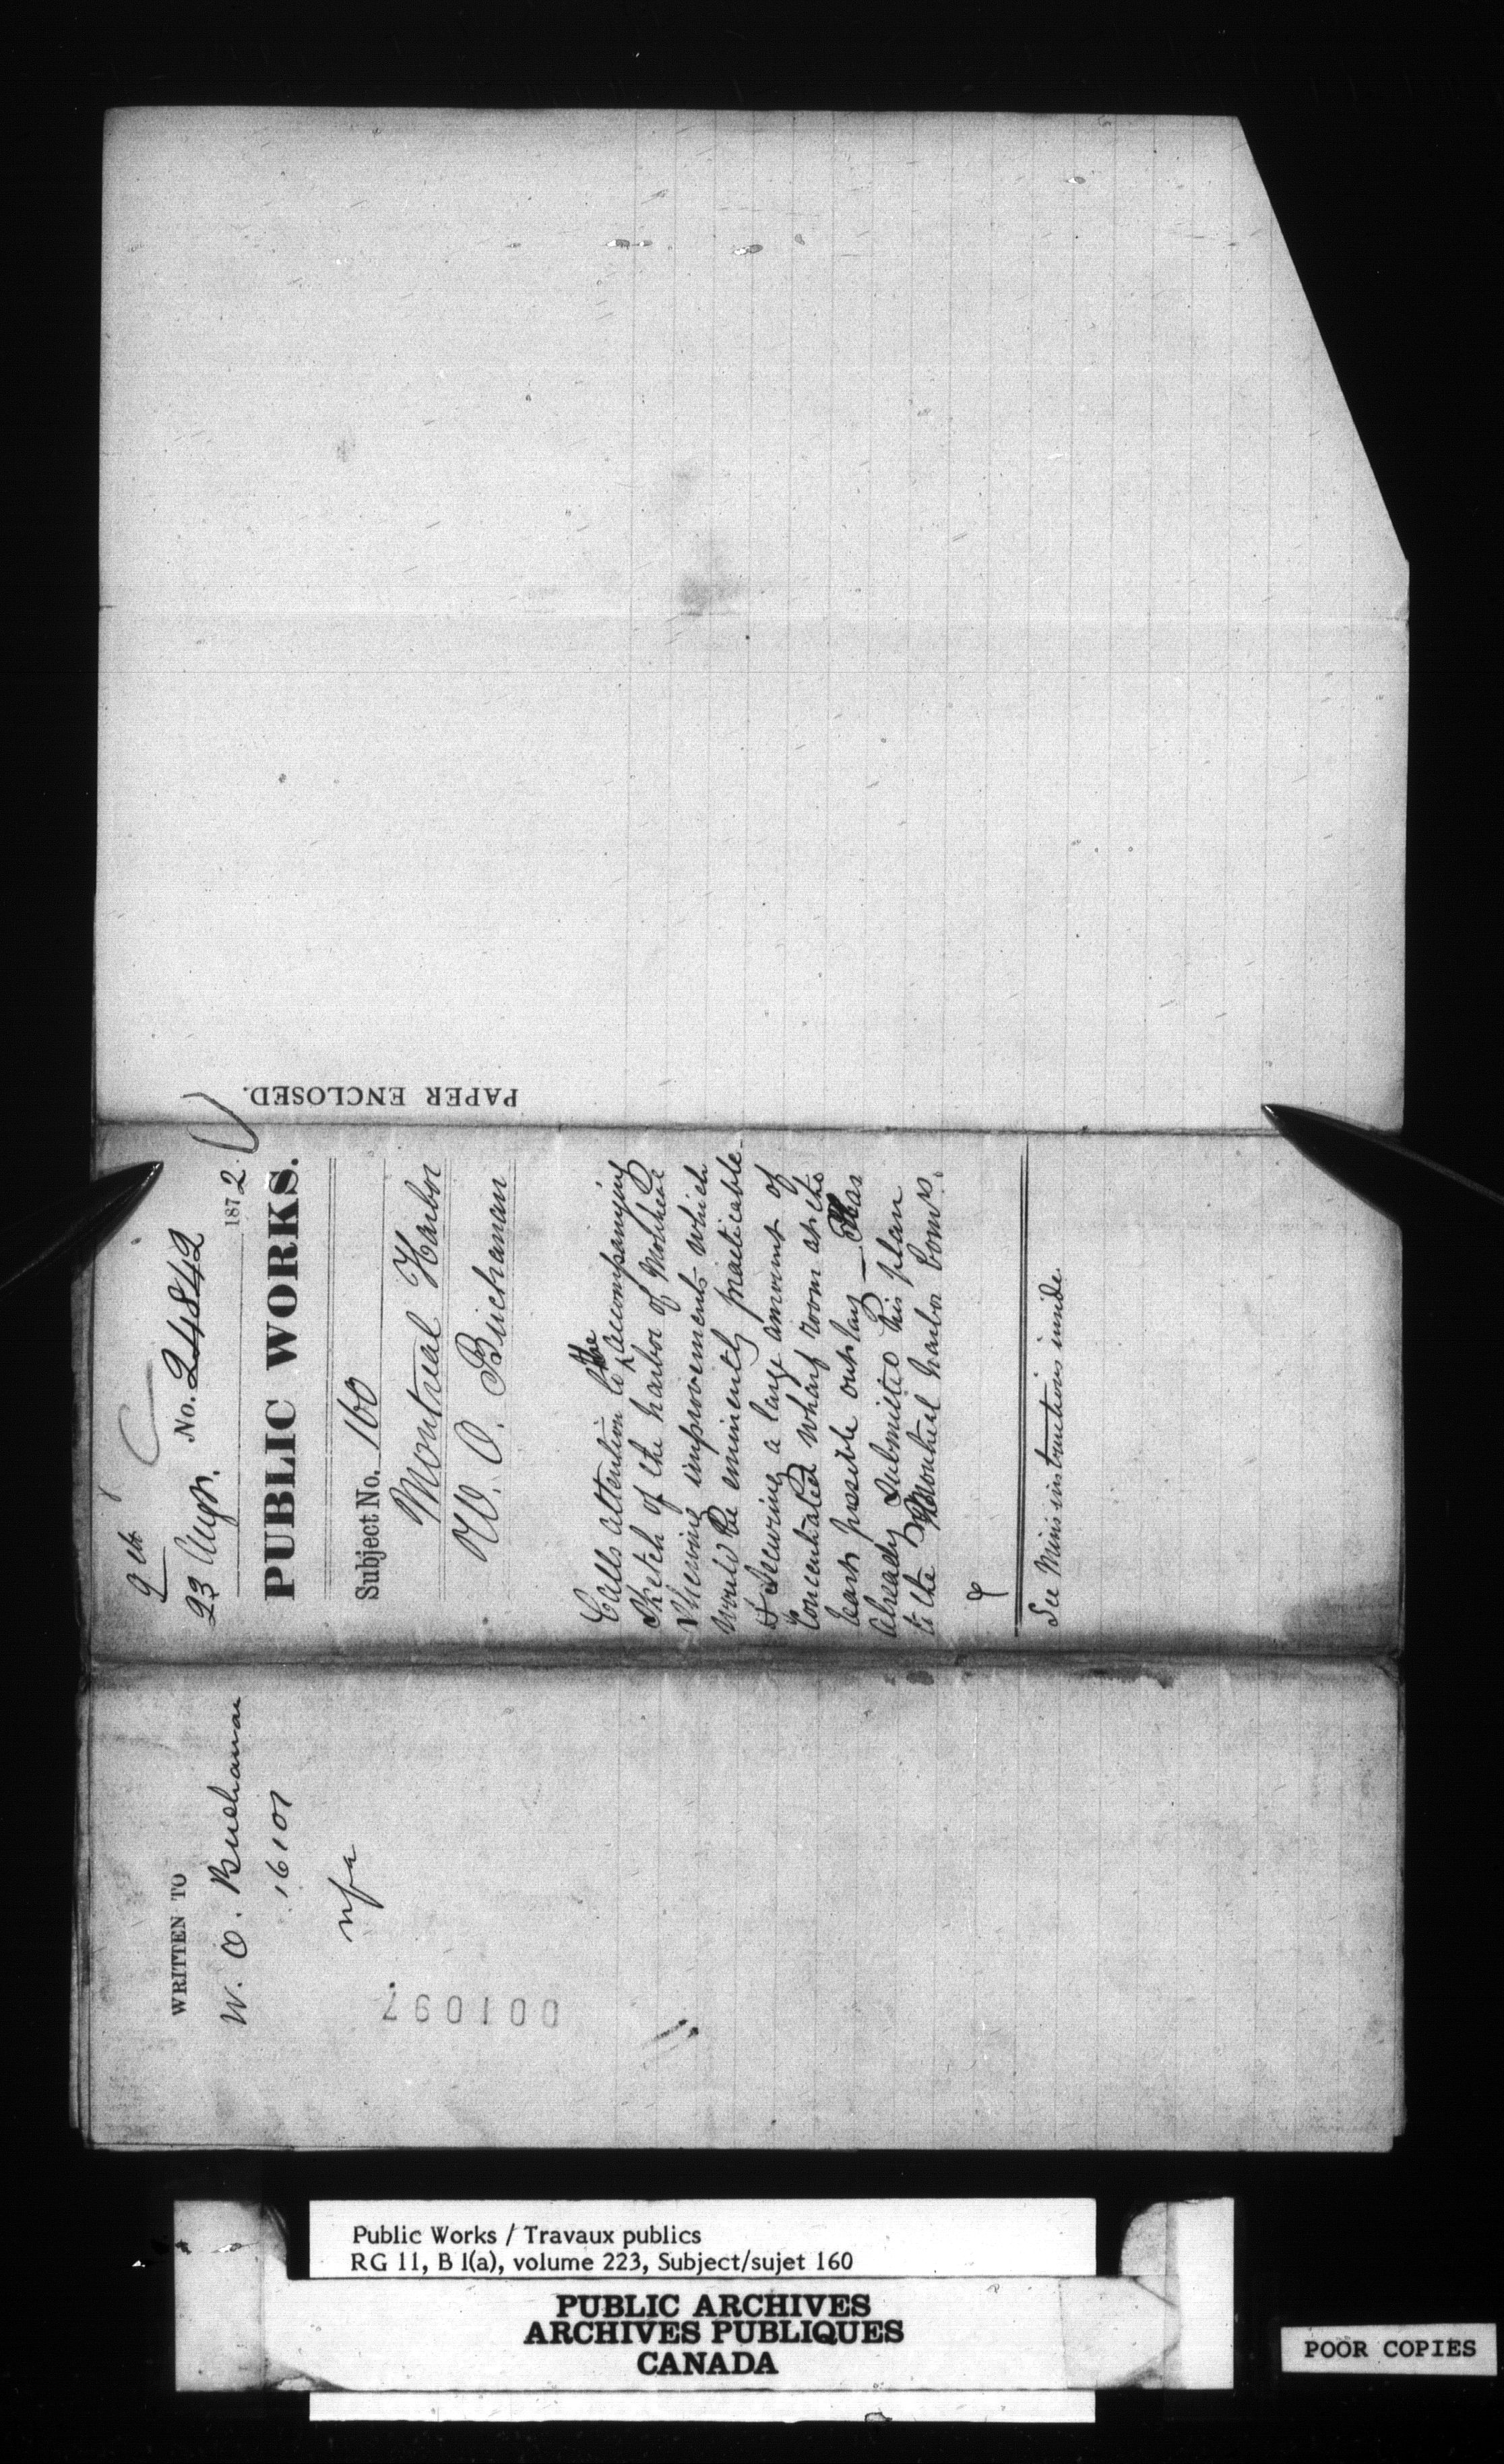 9th
23 Augt. No. 24842
1872
PUBLIC WORKS.
Subject No. 160
Montreal Harbor
W. O. Buchanan
Calls attention to the accompanying
Sketch of the harbor of Montreal
Shewing improvements which
would be eminently practicable
& securing a large amount of
Concentrated wharf room at the
least possible outlay — Has
already submitted his plan
to the Montreal harbor Comrs.
See Minis instructions inside.
PAPER ENCLOSED.
WRITTEN TO
W. O. Buchanan
16101
nfa
001097
Public Works / Travaux publics
RG 11, B 1(a), volume 223, Subject/sujet 160
PUBLIC ARCHIVES
ARCHIVES PUBLIQUES
CANADA
POOR COPIES